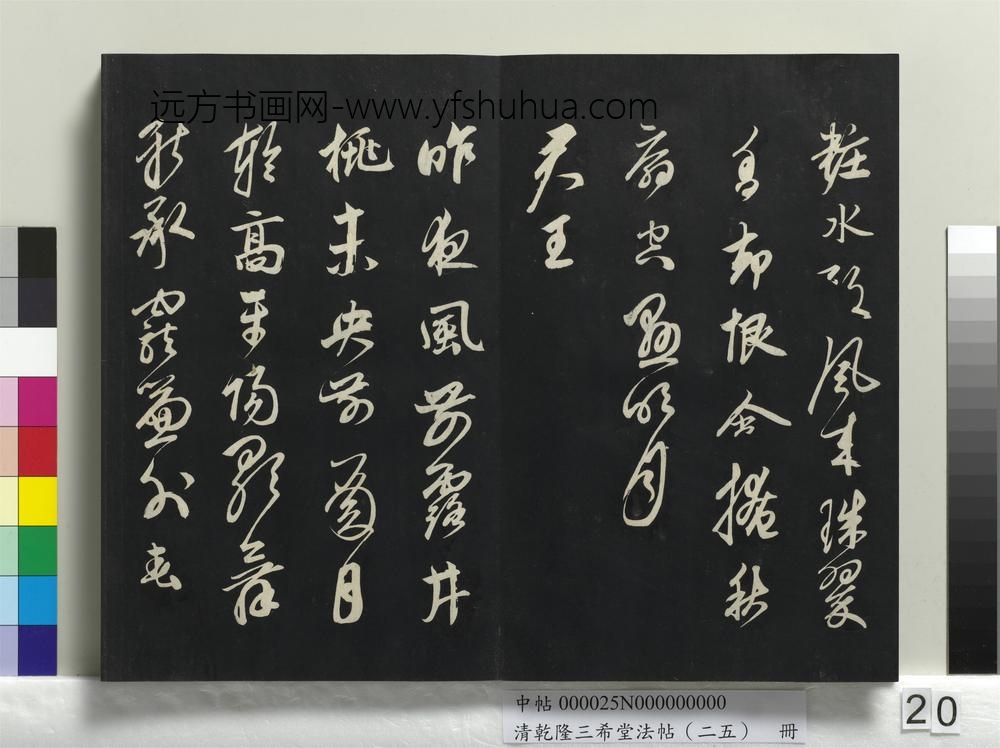 远方书画网-www.yfshuhua.com
粧水殿風来珠翠
香却恨含掩秋
扇空懸明月
君王
昨夜風開露井
桃未央前殿月
輪高平陽歌舞
新承寵簾外春
中帖 000025N000000000
清乾隆三希堂法帖（二五） 冊
20